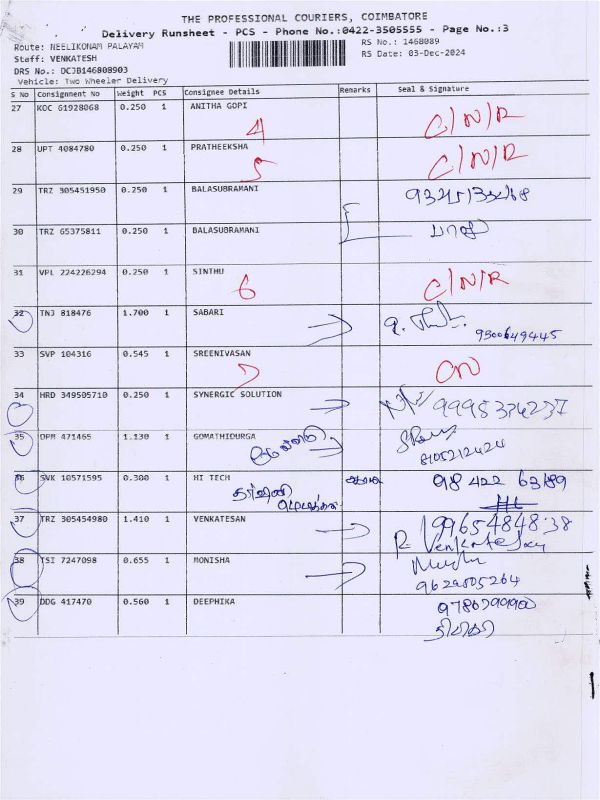 THE PROFESSIONAL COURIERS, COIMBATORE
Delivery Runsheet - PCS - Phone No.:0422-3505555 - Page No.:3
Route: NEELIKONAM PALAYAM
RS No.: 1468089
Staff: VENKATESH
RS Date: 03-Dec-2024
DRS No.: DCJB146808903
Vehicle: Two Wheeler Delivery
S No Consignment No Weight PCS Consignee Details Remarks Seal & Signature
27 KOC 61928068 0.250 1 ANITHA GOPI
4 C/N/R
28 UPT 4084780 0.250 1 PRATHEEKSHA
5 C/N/R
29 TRZ 305451950 0.250 1 BALASUBRAMANI
30 TRZ 65375811 0.250 1 BALASUBRAMANI
31 VPL 224226294 0.250 1 SINTHU
6 C/N/R
32 TNJ 818476 1.700 1 SABARI
9500649445
33 SVP 104316 0.545 1 SREENIVASAN
34 HRD 349505710 0.250 1 SYNERGIC SOLUTION
9995334237
35 DPB 471465 1.130 1 GOMATHIDURGA
8105212424
36 SVK 10571595 0.300 1 HI TECH
98422 63189
37 TRZ 305454980 1.410 1 VENKATESAN
9965484838
38 TSI 7247098 0.655 1 MONISHA
9629505264
39 DDG 417470 0.560 1 DEEPHIKA